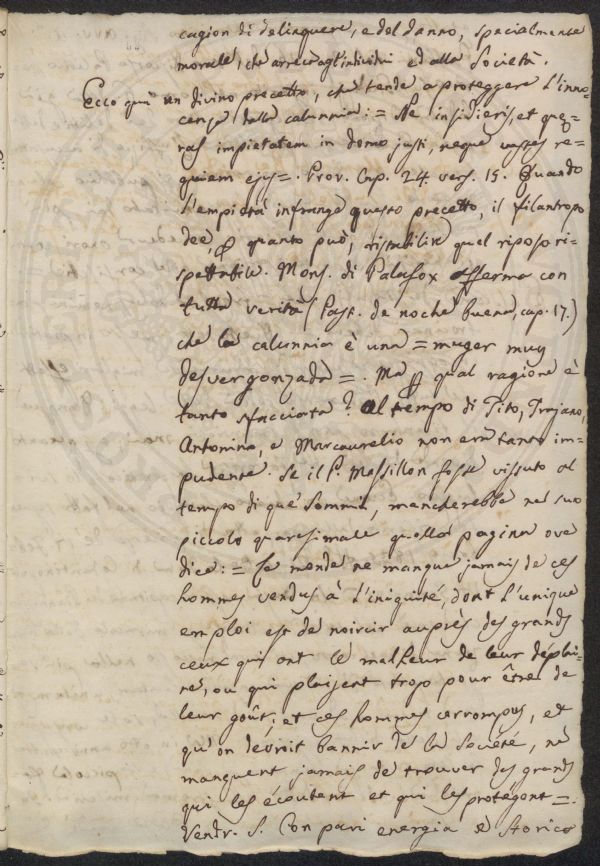 cagion di delinquere, e del danno, specialmente
morale, che arreca agl'individui ed alla Società.
Ecco quì un divino precetto, che tende a proteggere l'inno-
cenza dalla calunnia: = Ne insidieris, et quę-
ras impietatem in domo justi, neque vastes re-
quiem ejus =. Prov. Cap. 24. vers. 15. Quando
l'empietà infrange questo precetto, il filantropo
dee, quanto può, ristabilire quel riposo ri-
spettabile. Mons. di Palafox afferma con
tutta verità (Past. de noche buena, cap. 17.)
che la calunnia è una = muger muy
desvergonzada =. Ma qual ragione è
tanto sfacciata? Al tempo di Tito, Trajano,
Antonino, e Marcaurelio non era tanto im-
pudente. Se il P. Massillon fosse vissuto al
tempo di que' sommi, mancherebbe nel suo
piccolo quaresimale quella pagina ove
dice: = Le monde ne manque jamais de ces
hommes vendus à l'iniquité, dont l'unique
emploi est de noircir auprès des grands
ceux qui ont le malheur de leur déplai-
re, ou qui plaisent trop pour être de
leur goût; et ces hommes corrompus, et
qu'on devroit bannir de la Société, ne
manquent jamais de trouver des grands
qui les écoutent et qui les protégent =.
Vendr. S. Con pari energia lo Storico